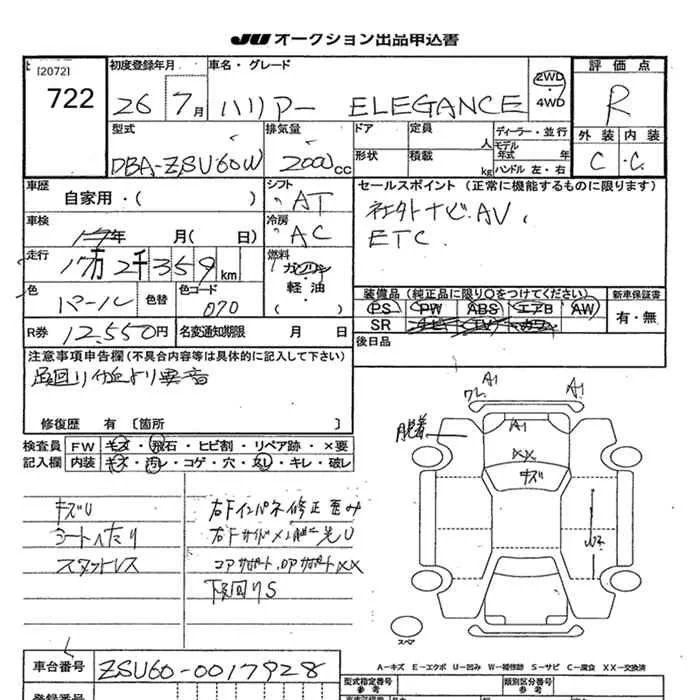 JU オークション出品申込書
[2072]
722
初度登録年月
26 7月
車名・グレード
ハリアー ELEGANCE
2WD
・
4WD
評価点
R
外装 内装
C ・C・
型式
DBA-ZSU60W
排気量
2000cc
ドア
形状
定員 人
積載 kg
ディーラー・並行
モデル年式 年
ハンドル 左・右
車歴
自家用・( )
シフト
AT
セールスポイント (正常に機能するものに限ります)
社外ナビ.AV,
ETC
車検
年 月( 日)
冷房
AC
走行
17万2千359km
燃料
ガソリン
・
軽油
( )
色
パール
色替
色コード
070
装備品(純正品に限り○をつけてください)
PS PW ABS エアB AW
SR
新車保証書
有・無
R券
12,550円
名変通知期限 月 日
後日品
注意事項申告欄(不具合内容等は具体的に記入して下さい)
足回り付近より異音
修復歴 有〔箇所 〕
検査員
記入欄
FW キズ・飛石・ヒビ割・リペア跡・×要
内装 キズ・汚レ・コゲ・穴・スレ・キレ・破レ
キズU
シートへたり
スタットレス
右Fインパネ修正歪み
コアサポート
XX
下回りS
A1
A1
A1
脱着
XX
キズ
W2
スペア
A-キズ E-エクボ U-凹み W-補修跡 S-サビ C-腐食 XX-交換済
車台番号
ZSU60-0017928
登録番号
型式指定番号
参考
類別区分番号
参考